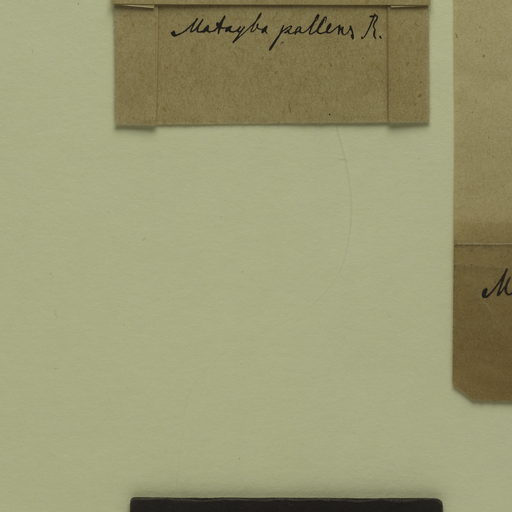 Matayba pallens R.
M